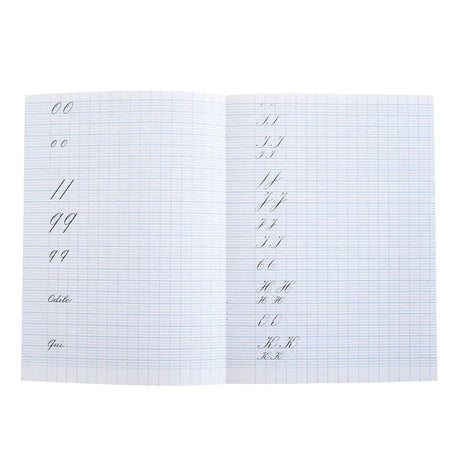 O O
o o
l l
q q
q q
Odile
qui
I I
I I
I I
J J
J J
I I
6 6
H H
H H
E E
K K
K K